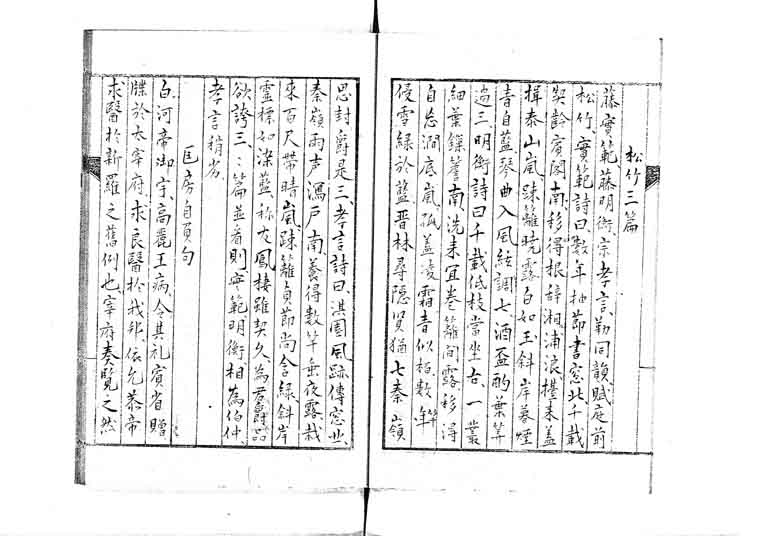 松竹三篇
藤實範、藤明衡、宗孝言、勒同韻、賦庭前
松竹、實範詩曰、數年抽節書窓北、千載
契齡賓閣南、移得根辭湘浦浪、擡來蓋
揖泰山嵐、踈籬曉露白如玉、斜岸暮煙
青自藍、琴曲入風絃調七、酒盃酌葉筭
逾三、明衡詩曰、千載低枝當坐右、一叢
細葉鏁簷南、洗來宜卷籬間露、移得
自忘澗底嵐、孤蓋凌霜青似栢、數竿
侵雪緑於藍、晋林尋隱賢猶七、秦嶺
思封爵是三、孝言詩曰、淇園風跡傳窓北、
秦嶺雨声瀉戸南、養得數竿垂夜露、栽
來百尺帶晴嵐、踈籬貞節尚含緑、斜岸
霊標如染藍、称友鳳棲雖契久、為君爵品
欲誇三、三篇並看則實範明衡、相為伯仲、
孝言稍劣、
匡房自負句
白河帝御宇、高麗王病、令其礼賓省贈
牒於太宰府、求良醫於我邦、依允恭帝
求醫於新羅之舊例也、宰府奏覧之、然